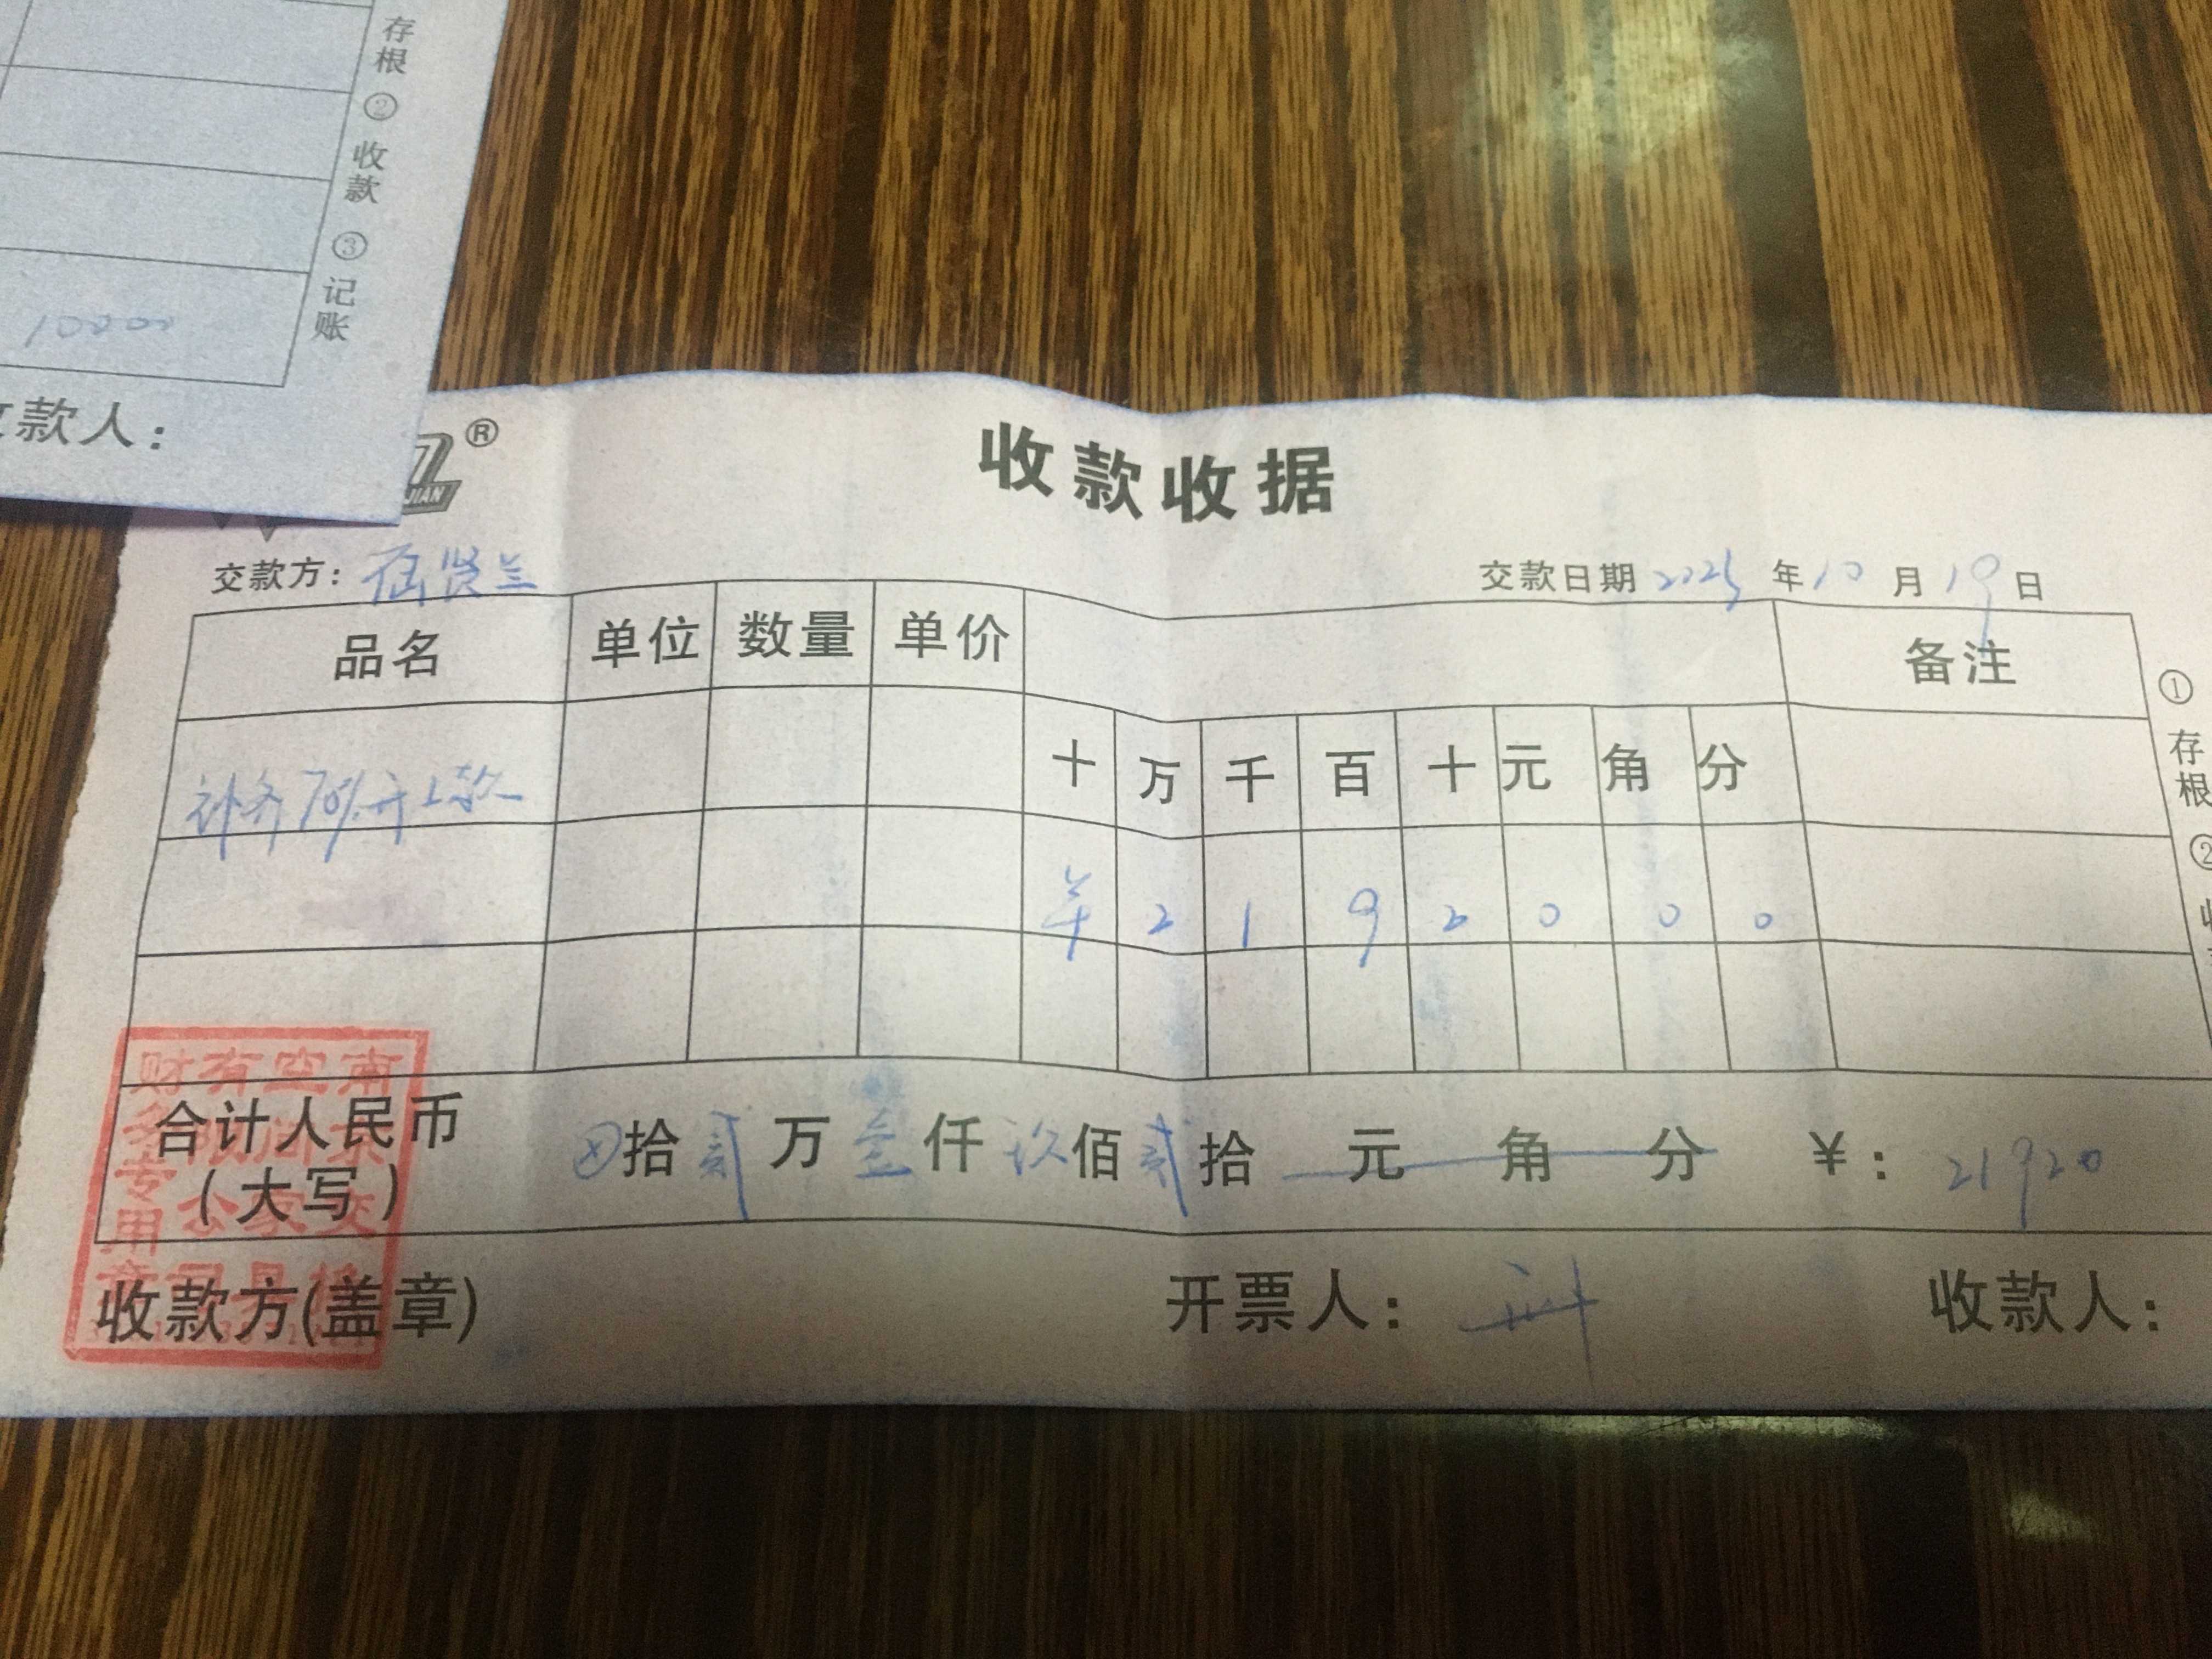 存根 ② 收款 ③ 记账
10000
款人：
®
收款收据
交款方：
交款日期 2025 年 10 月 19 日
品名 单位 数量 单价 备注
补齐70%开工款
十 万 千 百 十 元 角 分
¥ 2 1 9 2 0 0 0
合计人民币（大写） ⊗拾贰万壹仟玖佰贰拾 元 角 分 ¥：21920
收款方(盖章) 开票人： 收款人：
① 存根 ②
财务专用章